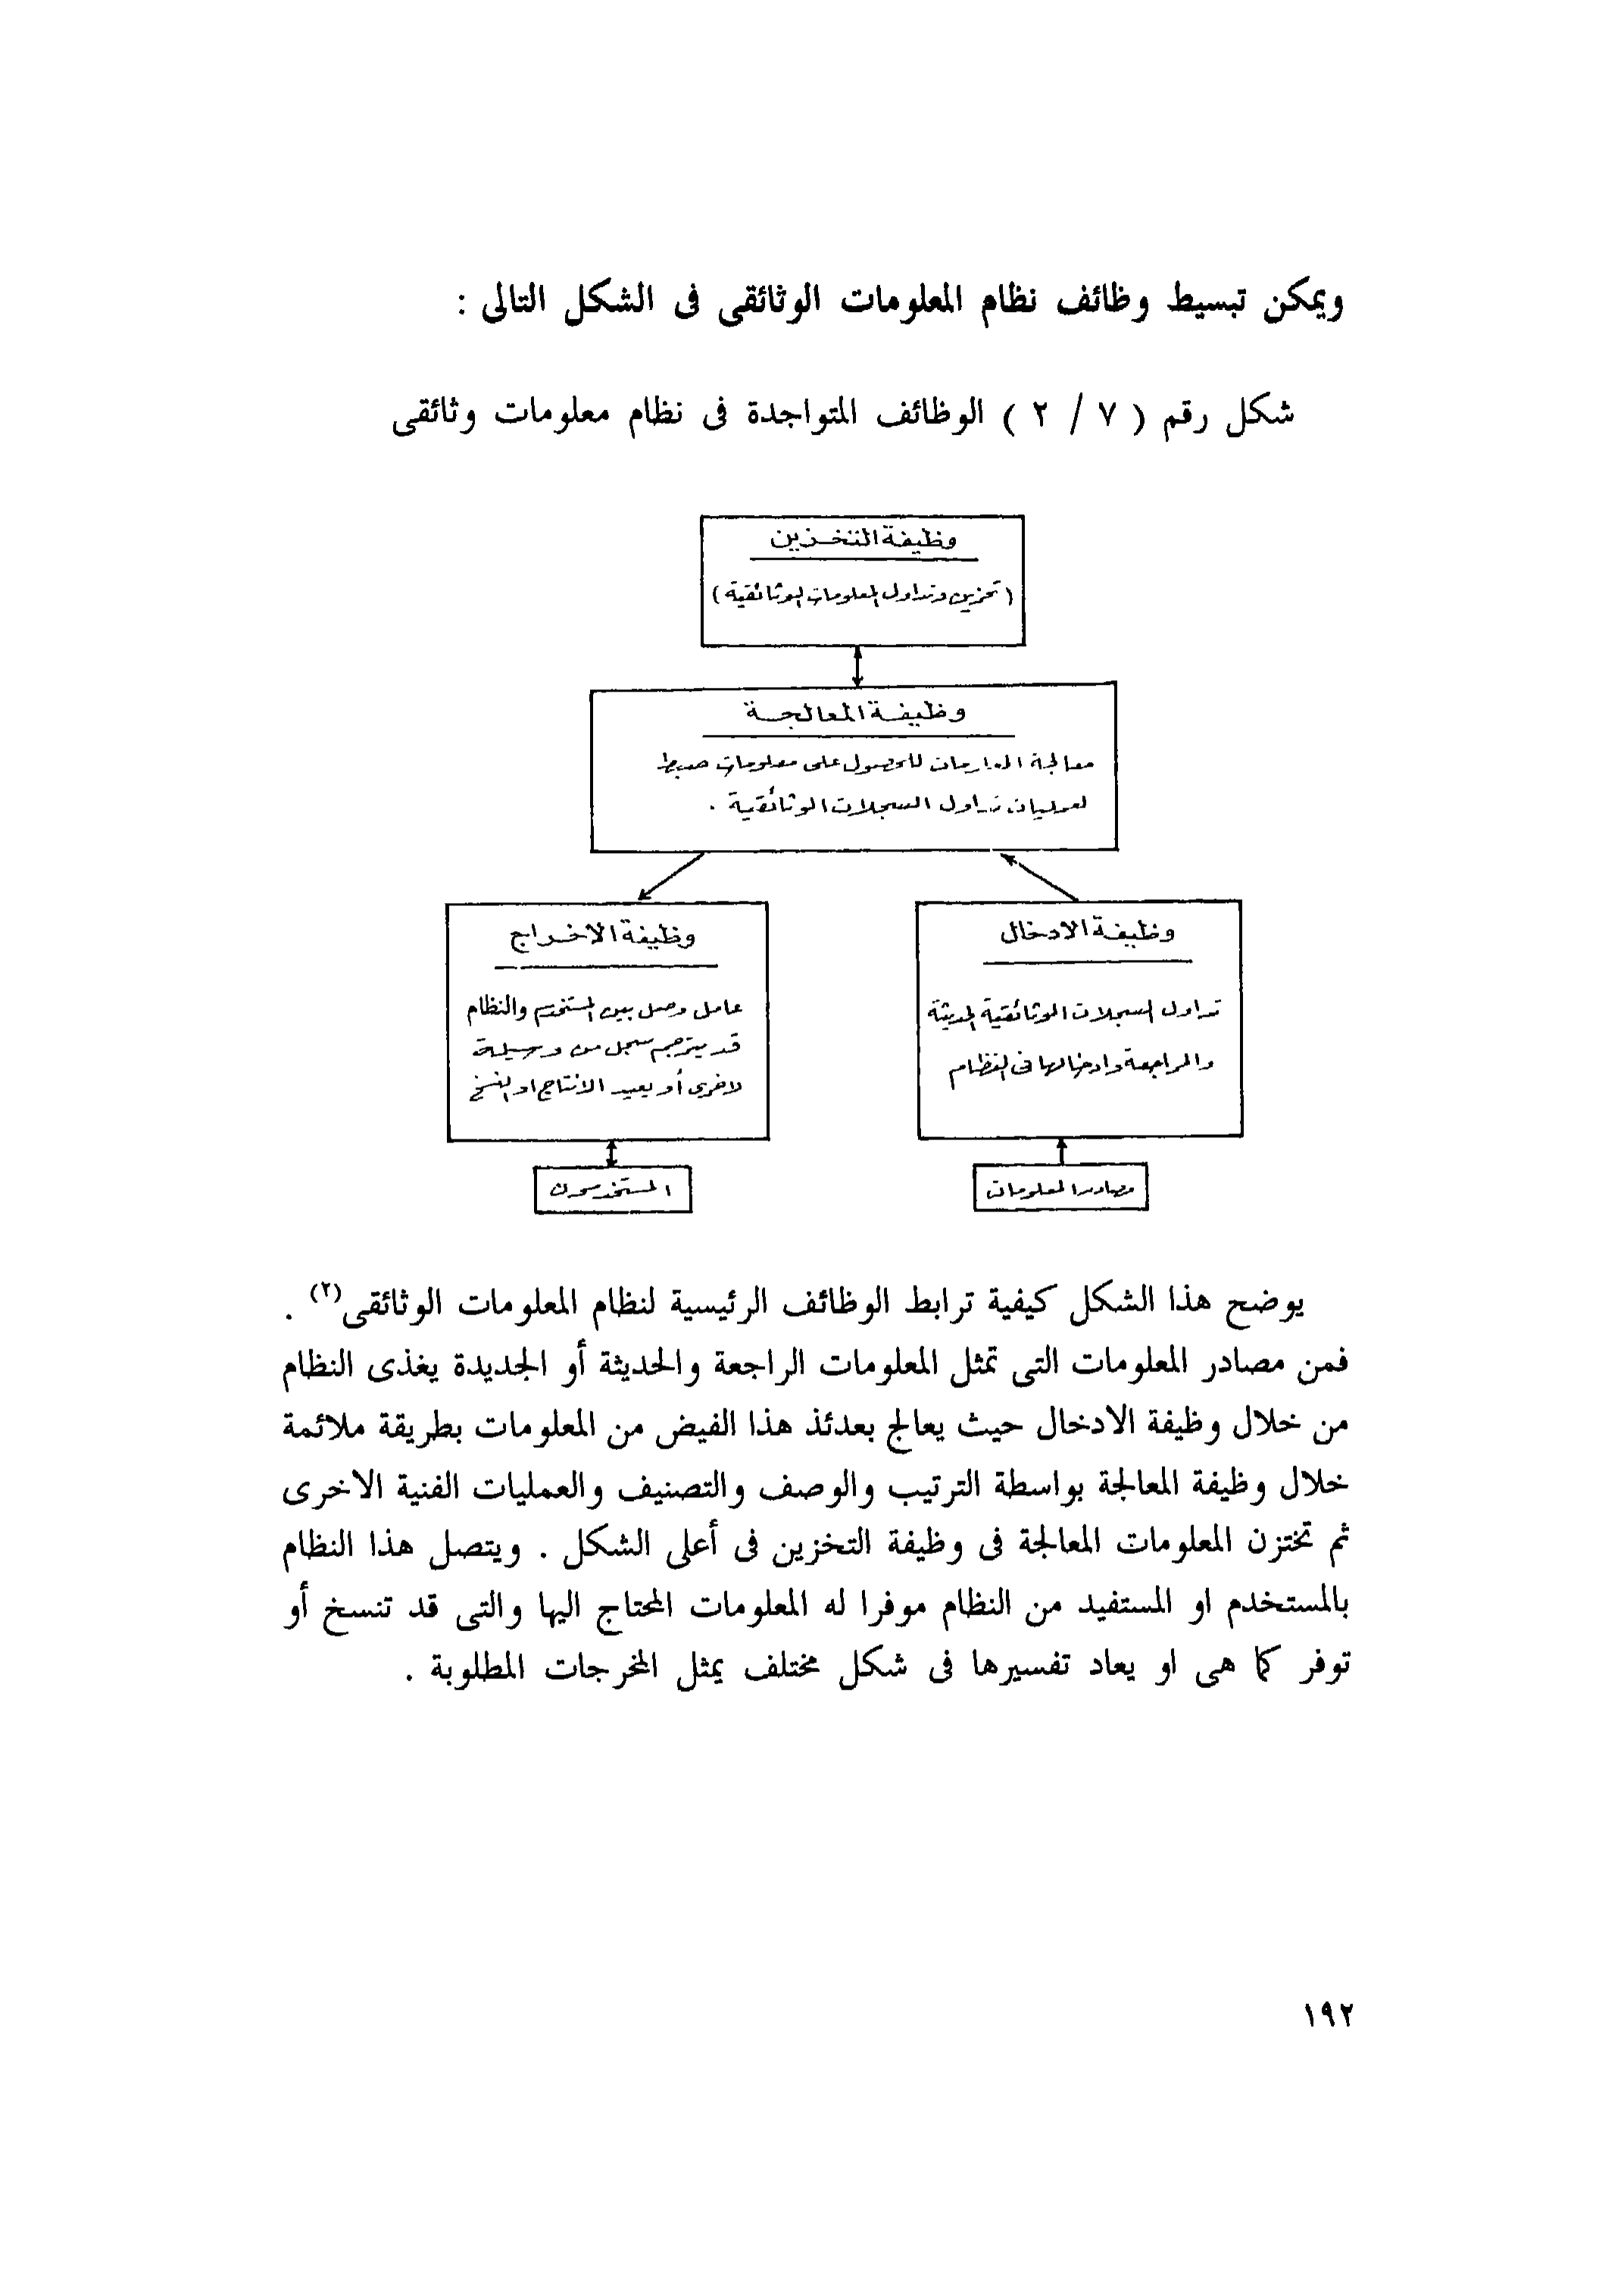 ويمكن تبسيط وظائف نظام المعلومات الوثائقى فى الشكل التالى :
شكل رقم ( ٧ / ٢ ) الوظائف المتواجدة فى نظام معلومات وثائقى
وظيفة التخزين
( تخزين وتداول المعلومات الوثائقية )
وظيفة المعالجة
معالجة المعلومات للحصول على معلومات ضبط
لعمليات تداول السجلات الوثائقية .
وظيفة الادخال
تداول السجلات الوثائقية الحديثة
والمراجعة وادخالها فى النظام
وظيفة الاخراج
عامل وصل بين المستخدم والنظام
قد يترجم سجل من وسيلة
لاخرى أو يعيد الانتاج او النسخ
مصادر المعلومات
المستخدمون
يوضح هذا الشكل كيفية ترابط الوظائف الرئيسية لنظام المعلومات الوثائقى(٢) .
فمن مصادر المعلومات التى تمثل المعلومات الراجعة والحديثة أو الجديدة يغذى النظام
من خلال وظيفة الادخال حيث يعالج بعدئذ هذا الفيض من المعلومات بطريقة ملائمة
خلال وظيفة المعالجة بواسطة الترتيب والوصف والتصنيف والعمليات الفنية الاخرى
ثم تختزن المعلومات المعالجة فى وظيفة التخزين فى أعلى الشكل . ويتصل هذا النظام
بالمستخدم او المستفيد من النظام موفرا له المعلومات المحتاج اليها والتى قد تنسخ أو
توفر كما هى او يعاد تفسيرها فى شكل مختلف يمثل المخرجات المطلوبة .
١٩٢